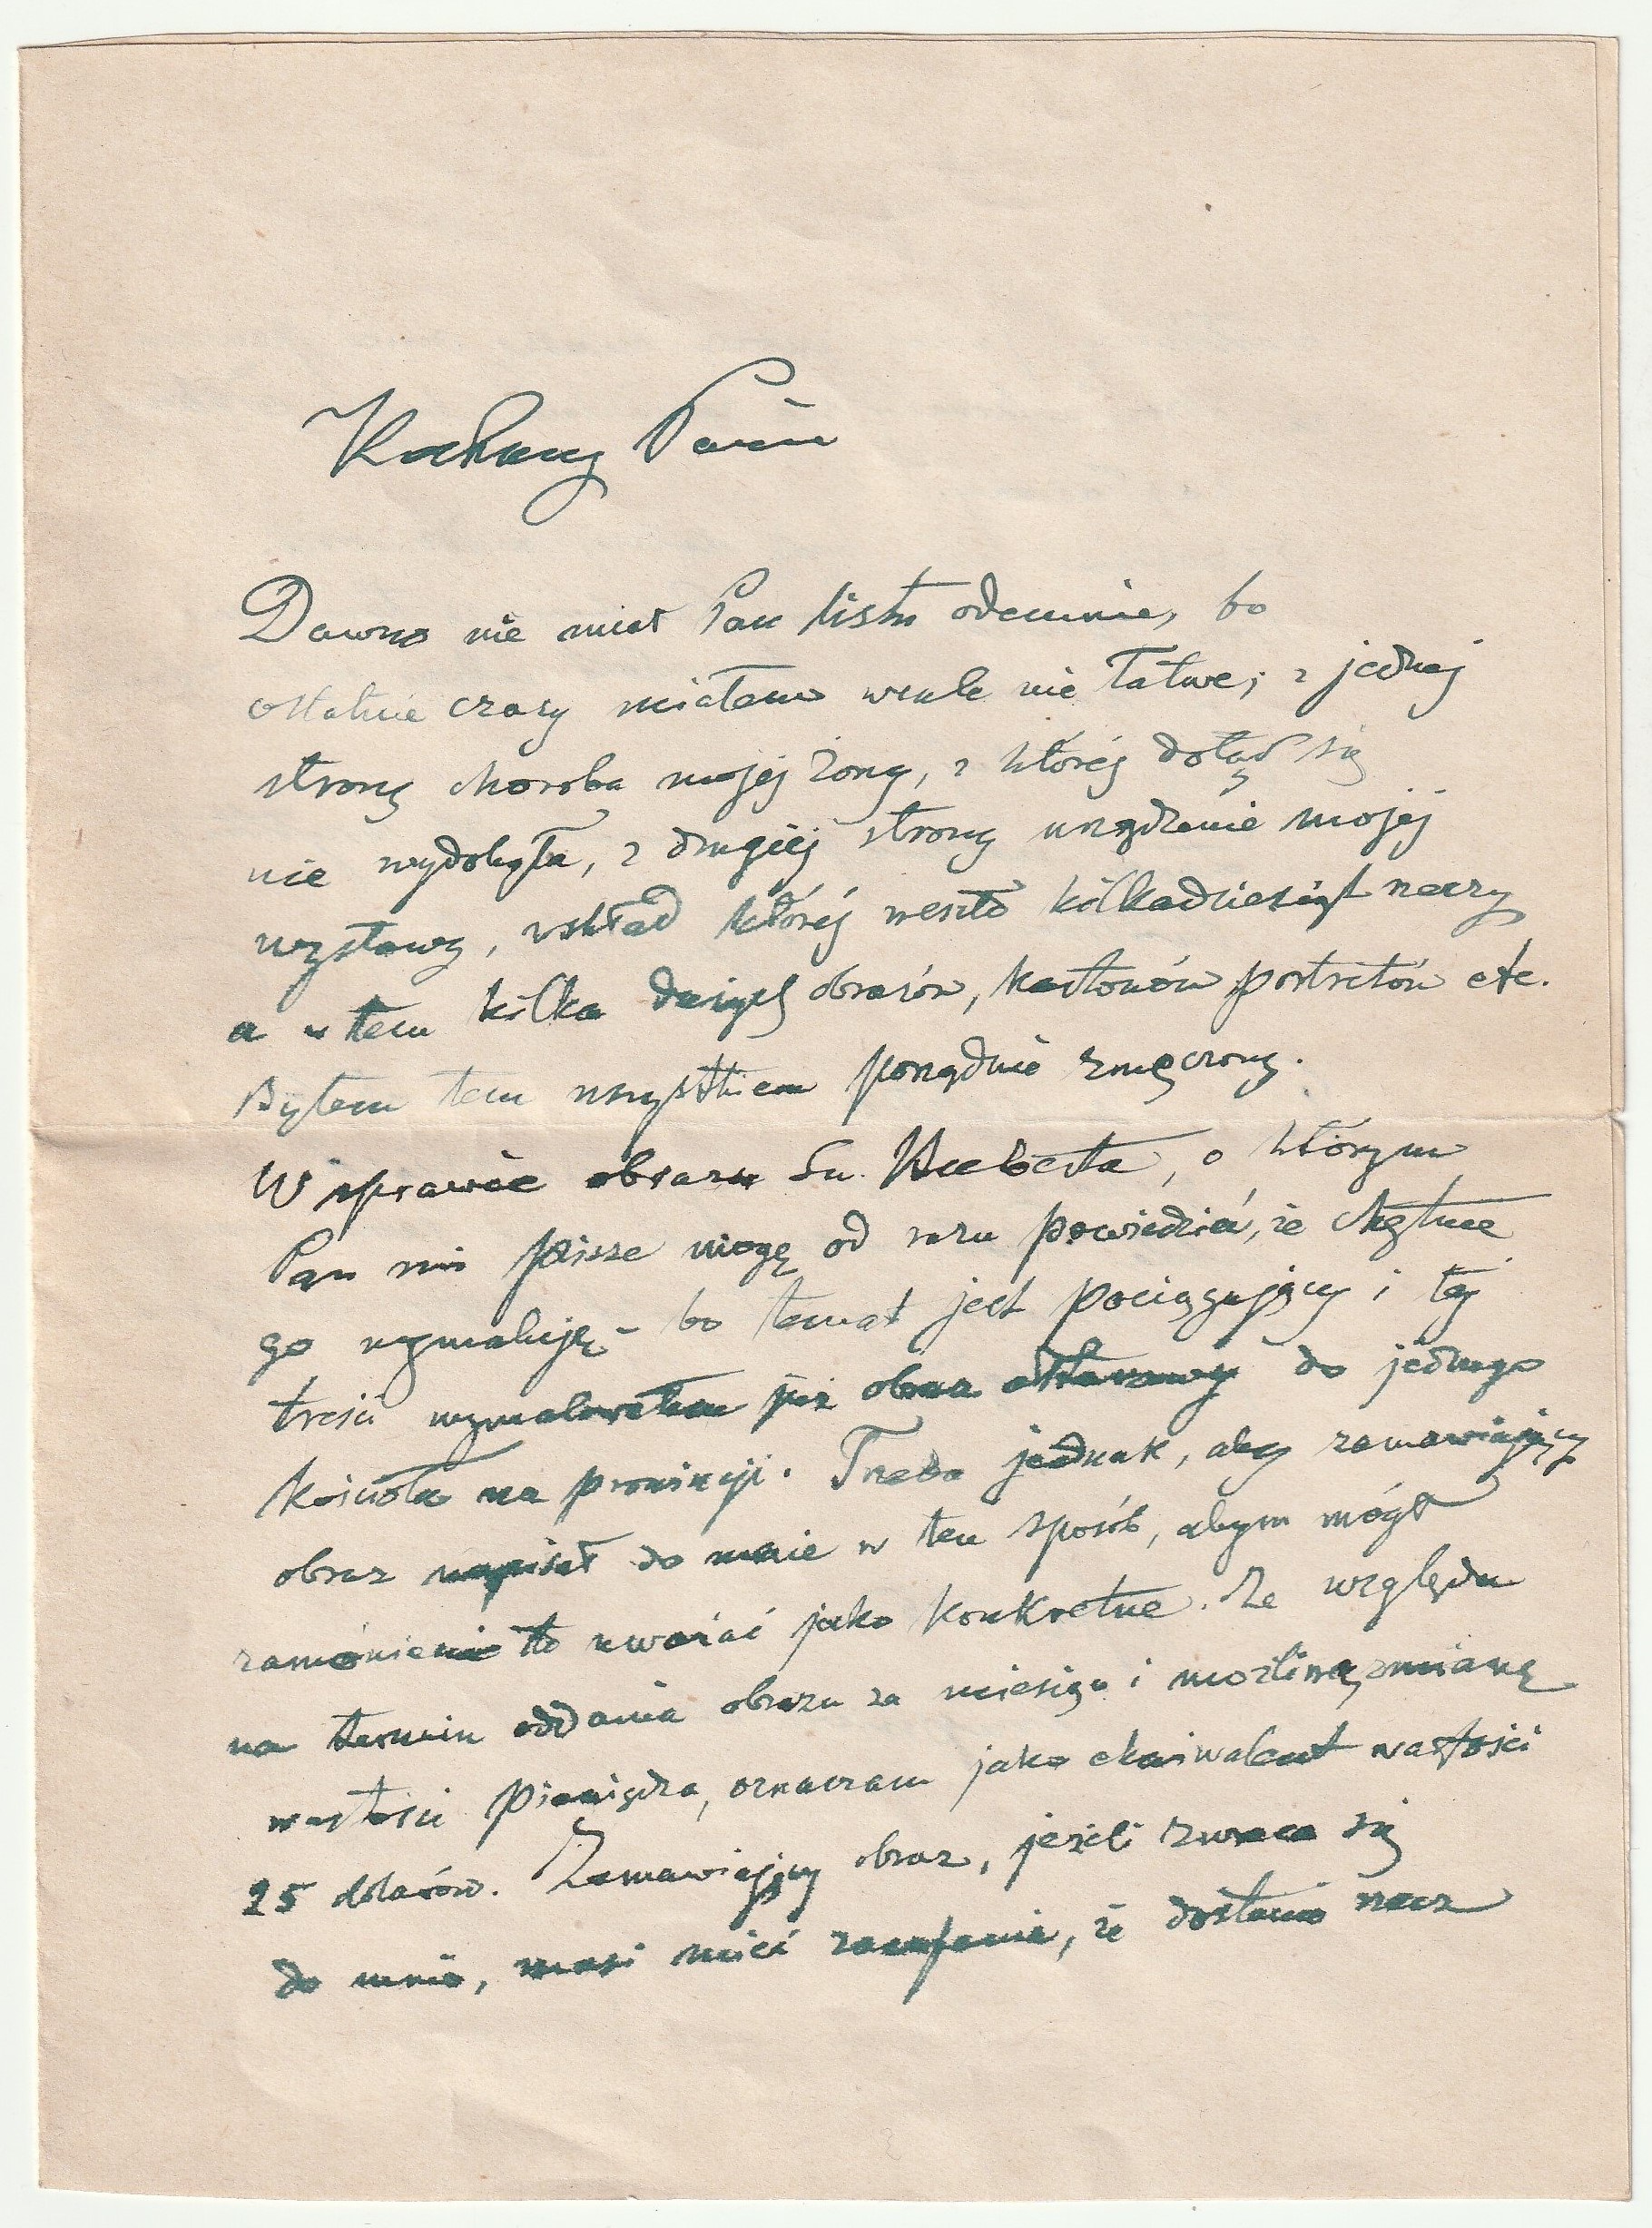 Kochany Panie
Dawno nie miał Pan listu odemnie, bo
ostatnie czasy miałem wcale nie łatwe; z jednej
strony choroba mojej żony, z której dotąd się
nie wydobyła, z drugiej strony urządzenie mojej
wystawy, wskład której weszło kilkadziesiąt rzeczy
a w tem kilka dużych obrazów, kartonów portretów etc.
Byłem tem wszystkiem porządnie zmęczony.
W sprawie obrazu Św. Huberta, o którym
Pan mi pisze mogę od razu powiedzieć, że chętnie
go wymaluję - bo temat jest pociągający i tej
treści wymalowałem już obraz ołtarzowy do jednego
kościoła na prowincji. Trzeba jednak, aby zamawiający
obraz napisał do mnie w ten sposób, abym mógł
zamówienie to uważać jako konkretne. Ze względu
na termin oddania obrazu za miesiąc i możliwą zmianę
wartości pieniądza, oznaczam jako ekwiwalent wartości
25 dolarów. Zamawiający obraz, jeżeli zwraca się
do mnie, musi mieć zaufanie, że dostanie rzecz